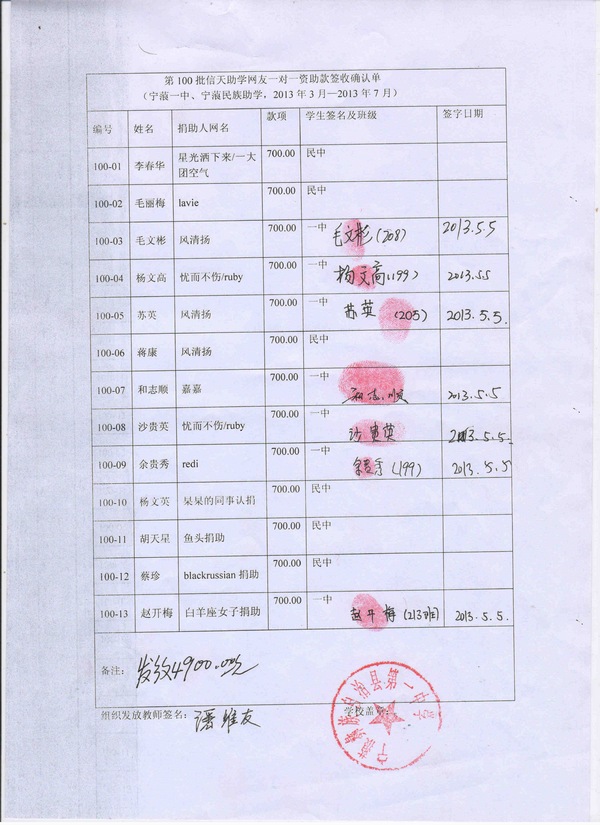 第100批信天助学网友一对一资助款签收确认单
（宁蒗一中、宁蒗民族助学，2013年3月—2013年7月）
编号 姓名 捐助人网名 款项 学生签名及班级 签字日期
100-01 李春华 星光洒下来/一大团空气 700.00 民中
100-02 毛丽梅 lavie 700.00 民中
100-03 毛文彬 风清扬 700.00 一中 毛文彬(208) 2013.5.5
100-04 杨文高 忧而不伤/ruby 700.00 一中 杨文高(199) 2013.5.5
100-05 苏英 风清扬 700.00 一中 苏英(205) 2013.5.5.
100-06 蒋康 风清扬 700.00 民中
100-07 和志顺 嘉嘉 700.00 一中 和志顺 2013.5.5
100-08 沙贵英 忧而不伤/ruby 700.00 一中 沙贵英 2013.5.5.
100-09 余贵秀 redi 700.00 一中 余贵秀(199) 2013.5.5
100-10 杨文英 呆呆的同事认捐 700.00 民中
100-11 胡天星 鱼头捐助 700.00 民中
100-12 蔡珍 blackrussian捐助 700.00 民中
100-13 赵开梅 白羊座女子捐助 700.00 一中 赵开梅(213班) 2013.5.5.
备注： 发放4900.00元
组织发放教师签名： 潘维友 学校盖章：
宁蒗彝族自治县第一中学